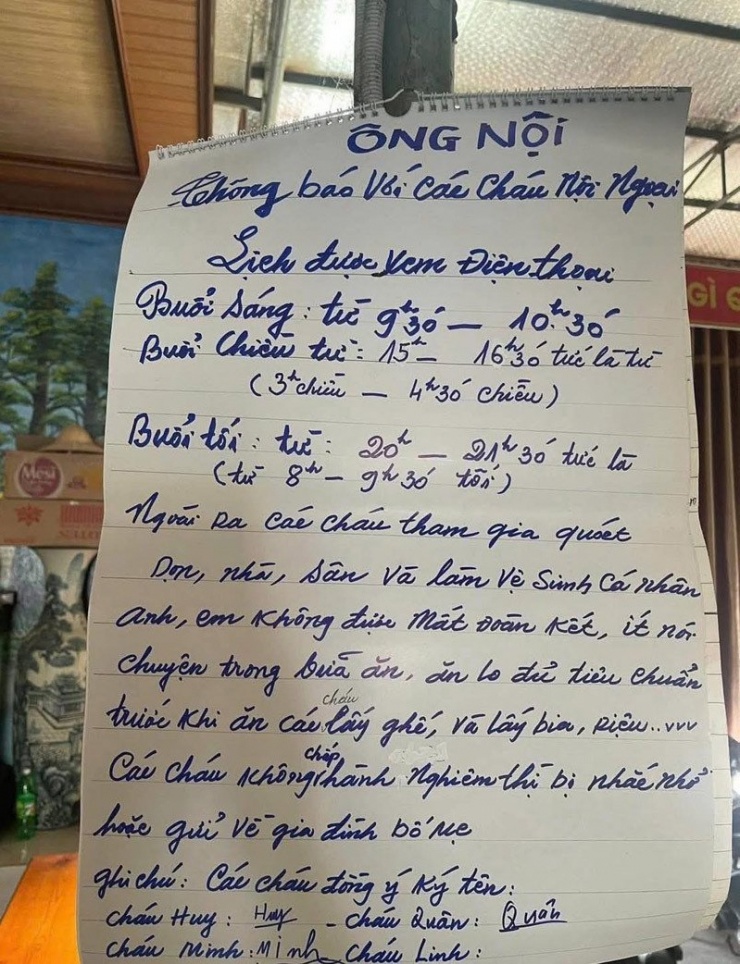 ÔNG NỘI
Thông báo Với Các Cháu Nội Ngoại
Lịch được xem Điện thoại
Buổi Sáng: từ 9h30' — 10h30'
Buổi Chiều từ: 15h — 16h30' tức là từ
(3h chiều — 4h30' chiều)
Buổi tối: từ: 20h — 21h30' tức là
(từ 8h — 9h30' tối)
Ngoài ra các cháu tham gia quét
Dọn, nhà, sân và làm vệ sinh cá nhân
anh, em không được mất đoàn kết, ít nói
chuyện trong bữa ăn, ăn lo đủ tiêu chuẩn
trước khi ăn các cháu lấy ghế, và lấy bia, rượu..vvv
Các cháu không chấp hành nghiêm thì bị nhắc nhở
hoặc gửi về gia đình bố mẹ
ghi chú: Các cháu đồng ý ký tên:
cháu Huy: Huy - cháu Quân: Quân
cháu Minh: Minh cháu Linh:
GÌ
Mesi